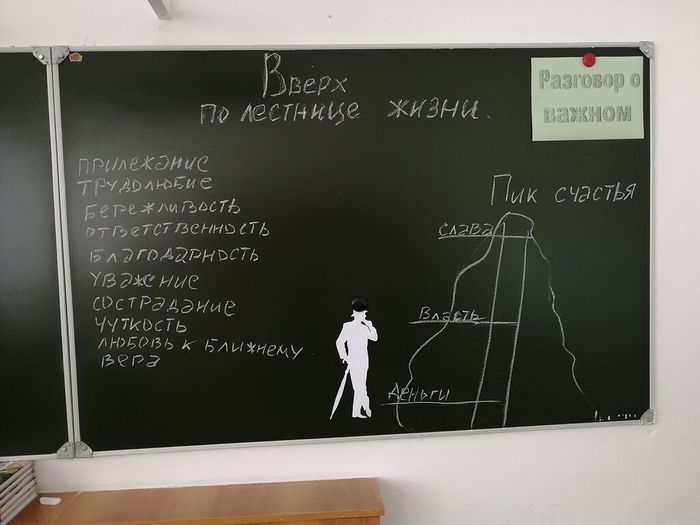 Вверх
по лестнице жизни.
Разговор о
важном
прилежание
трудолюбие
бережливость
ответственность
благодарность
уважение
сострадание
чуткость
любовь к ближнему
вера
Пик счастья
слава
Власть
деньги